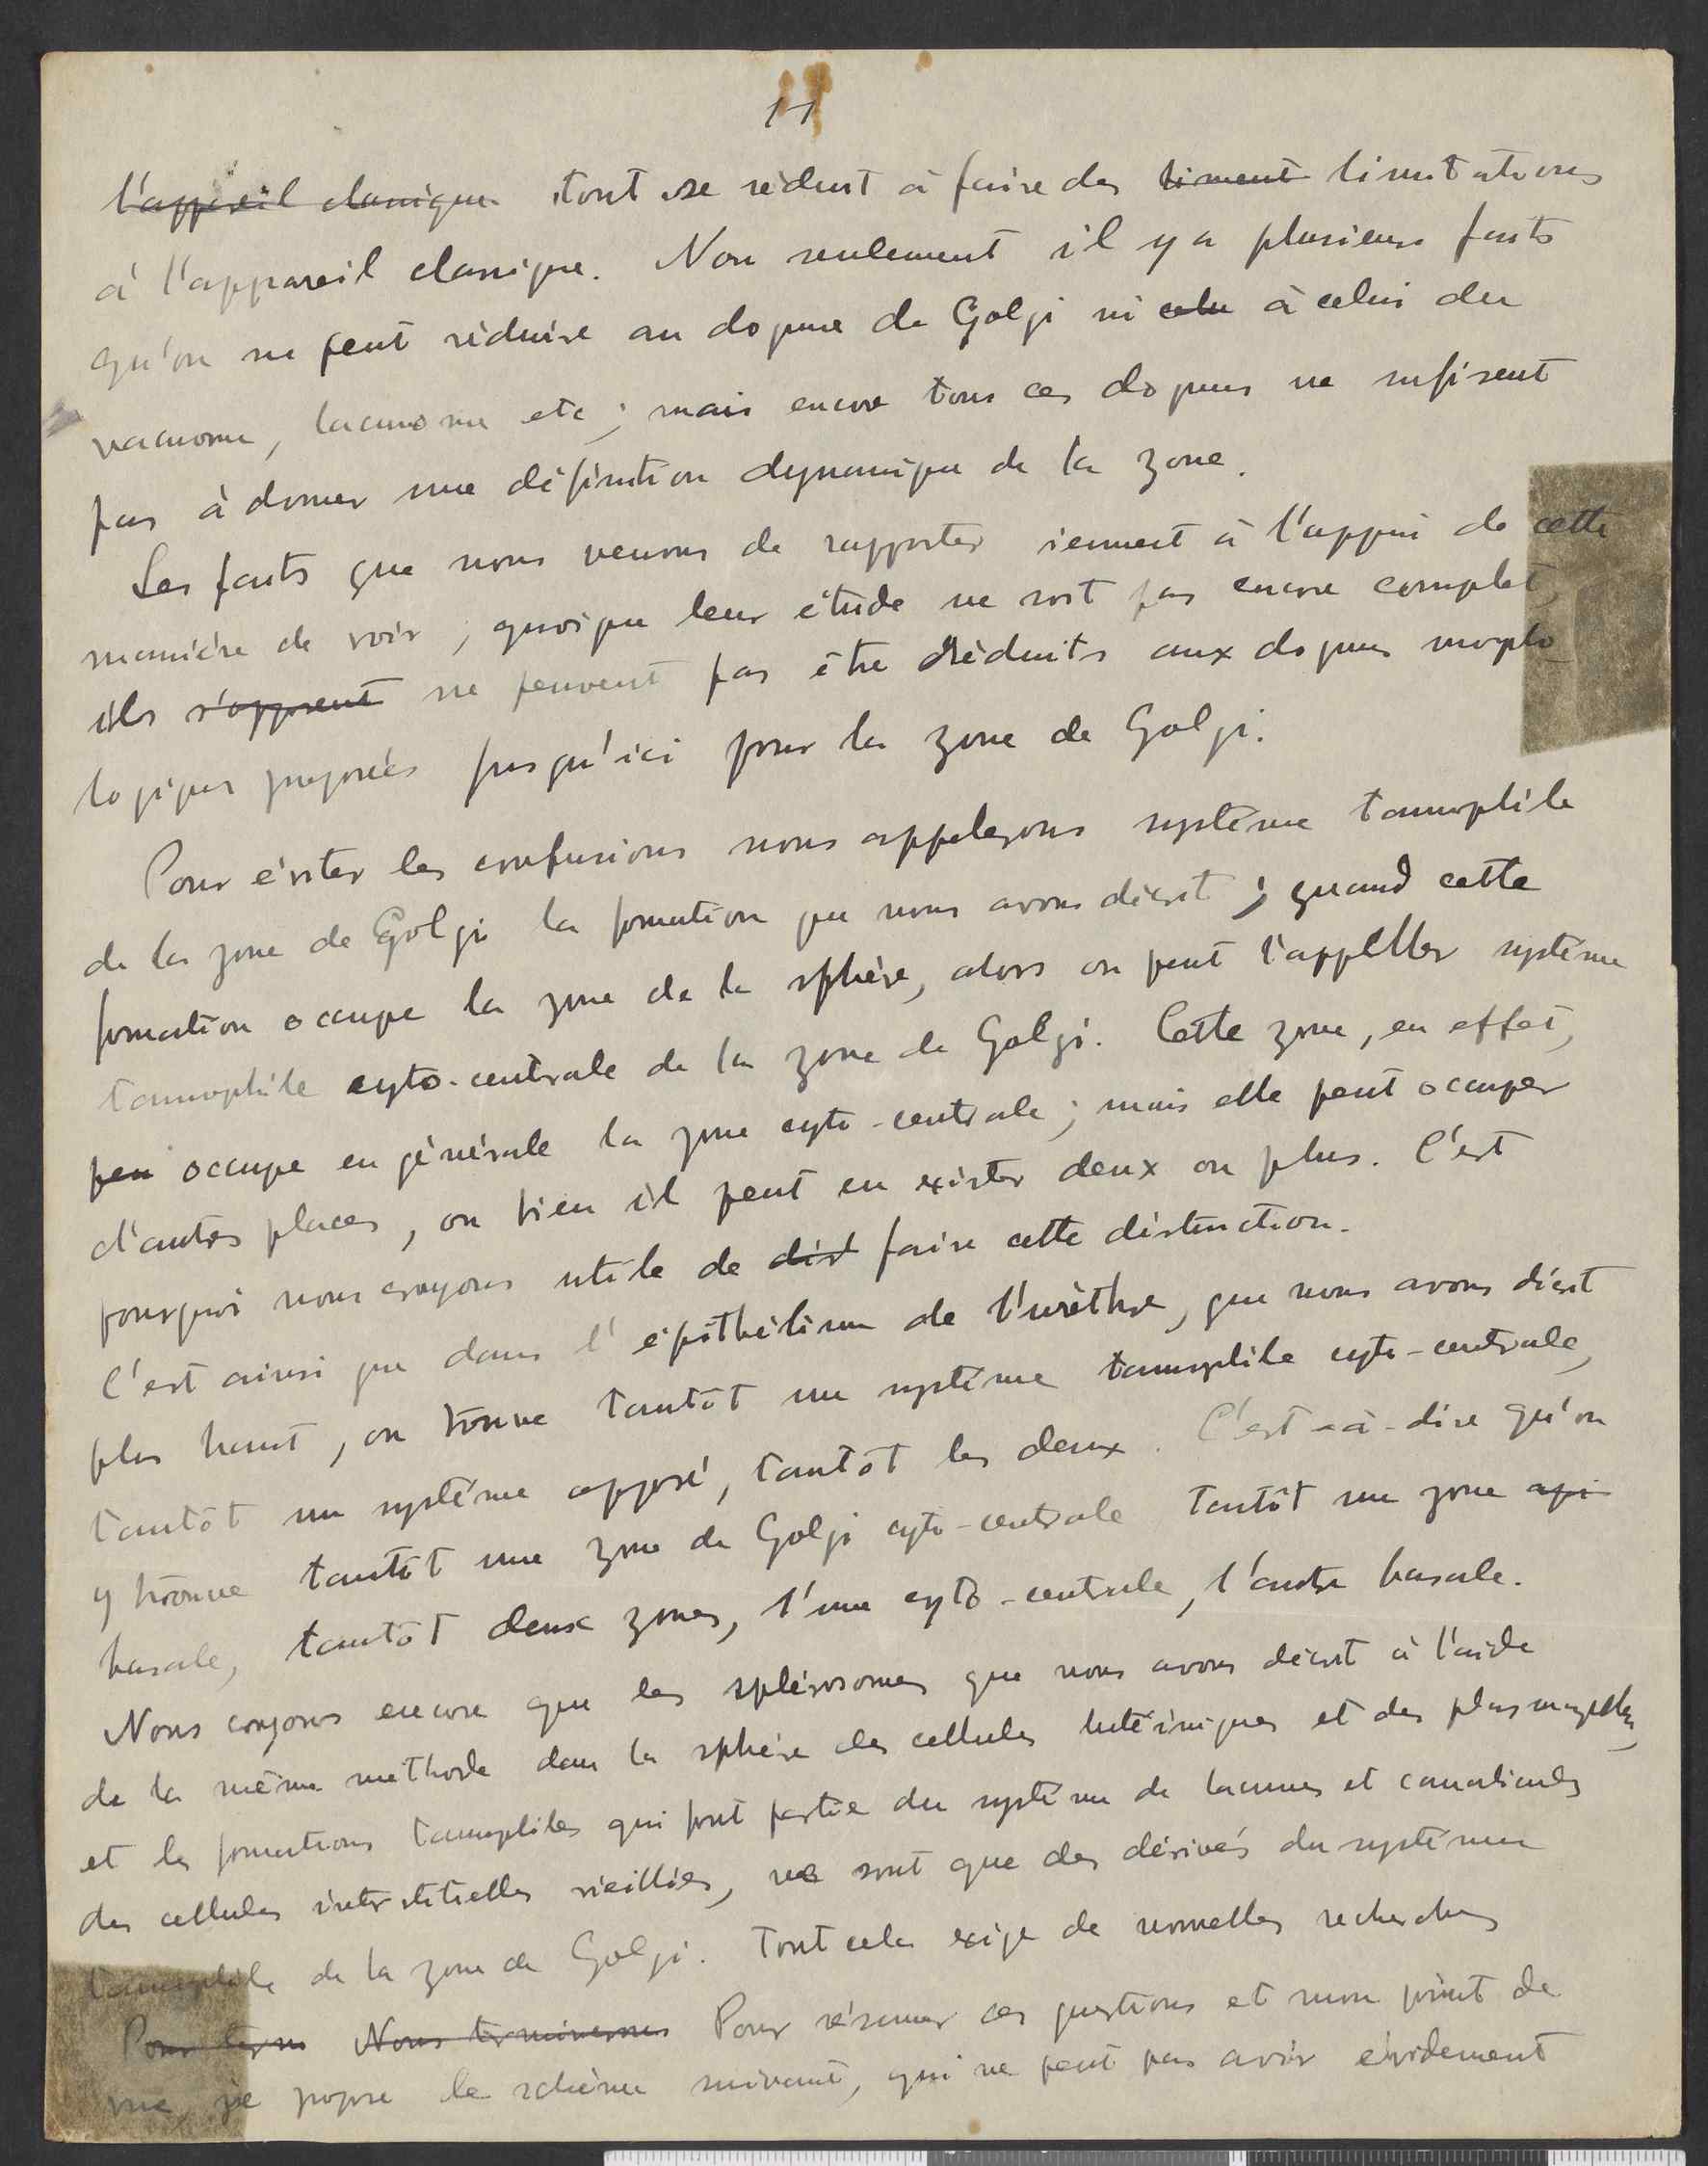 11
l'appareil classique tout se réduit à faire des liment limitations
à l'appareil classique. Non seulement il y a plusieurs faits
qu'on ne peut réduire au dogme de Golgi ni celu à celui du
vacuome, lacunome etc; mais encore tous ces dogmes ne sufisent
pas à donner une définition dynamique de la zone.
Les faits que nous venons de rapporter viennent à l'appui de cette
manière de voir; quoique leur étude ne soit pas encore complet,
ils s'opposent ne peuvent pas être réduits aux dogmes morpho-
logiques proposés jusqu'ici pour la zone de Golgi.
Pour éviter les confusions nous appelerons système tannophile
de la zone de Golgi la formation que nous avons décrit; quand cette
formation occupe la zone de la sphère, alors on peut l'appeller système
tannophile cyto-centrale de la zone de Golgi. Cette zone, en effet,
peu occupe en générale la zone cyto-centrale; mais elle peut occuper
d'autres places, ou bien il peut en exister deux ou plus. C'est
pourquoi nous croyons utile de dist faire cette distinction.
C'est ainsi que dans l'épithélium de l'urèthre, que nous avons décrit
plus haut, on trouve tantôt un système tannophile cyto-centrale,
tantôt un système opposé, tantôt les deux. C'est-à-dire qu'on
y trouve tantôt une zone de Golgi cyto-centrale tantôt une zone api
basale, tantôt deux zones, l'une cyto-centrale, l'autre basale.
Nous croyons encore que les sphérosomes que nous avons décrit à l'aide
de la même méthode dans la sphère des cellules lutéiniques et des plasmazellen,
et les formations tannophiles qui font partie du système de lacunes et canalicules
des cellules interstitielles vieillies, ne sont que des dérivés du système
tannophile de la zone de Golgi. Tout cela exige de nouvelles recherches
Pour term Nous terminerons Pour résumer ces questions et mon point de
vue, je propose le schème suivant, qui ne peut pas avoir évidement